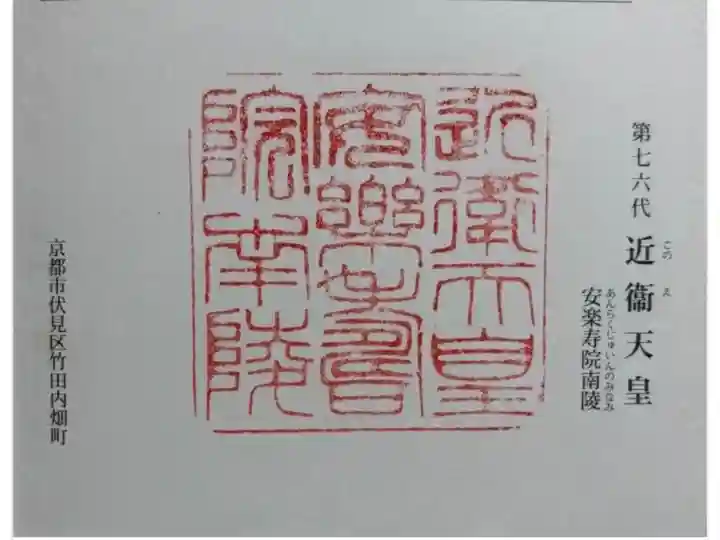 第七六代 近衞天皇
このえ
安楽寿院南陵
あんらくじゅいんのみなみ
近衛天皇
安樂壽
院南陵
京都市伏見区竹田内畑町